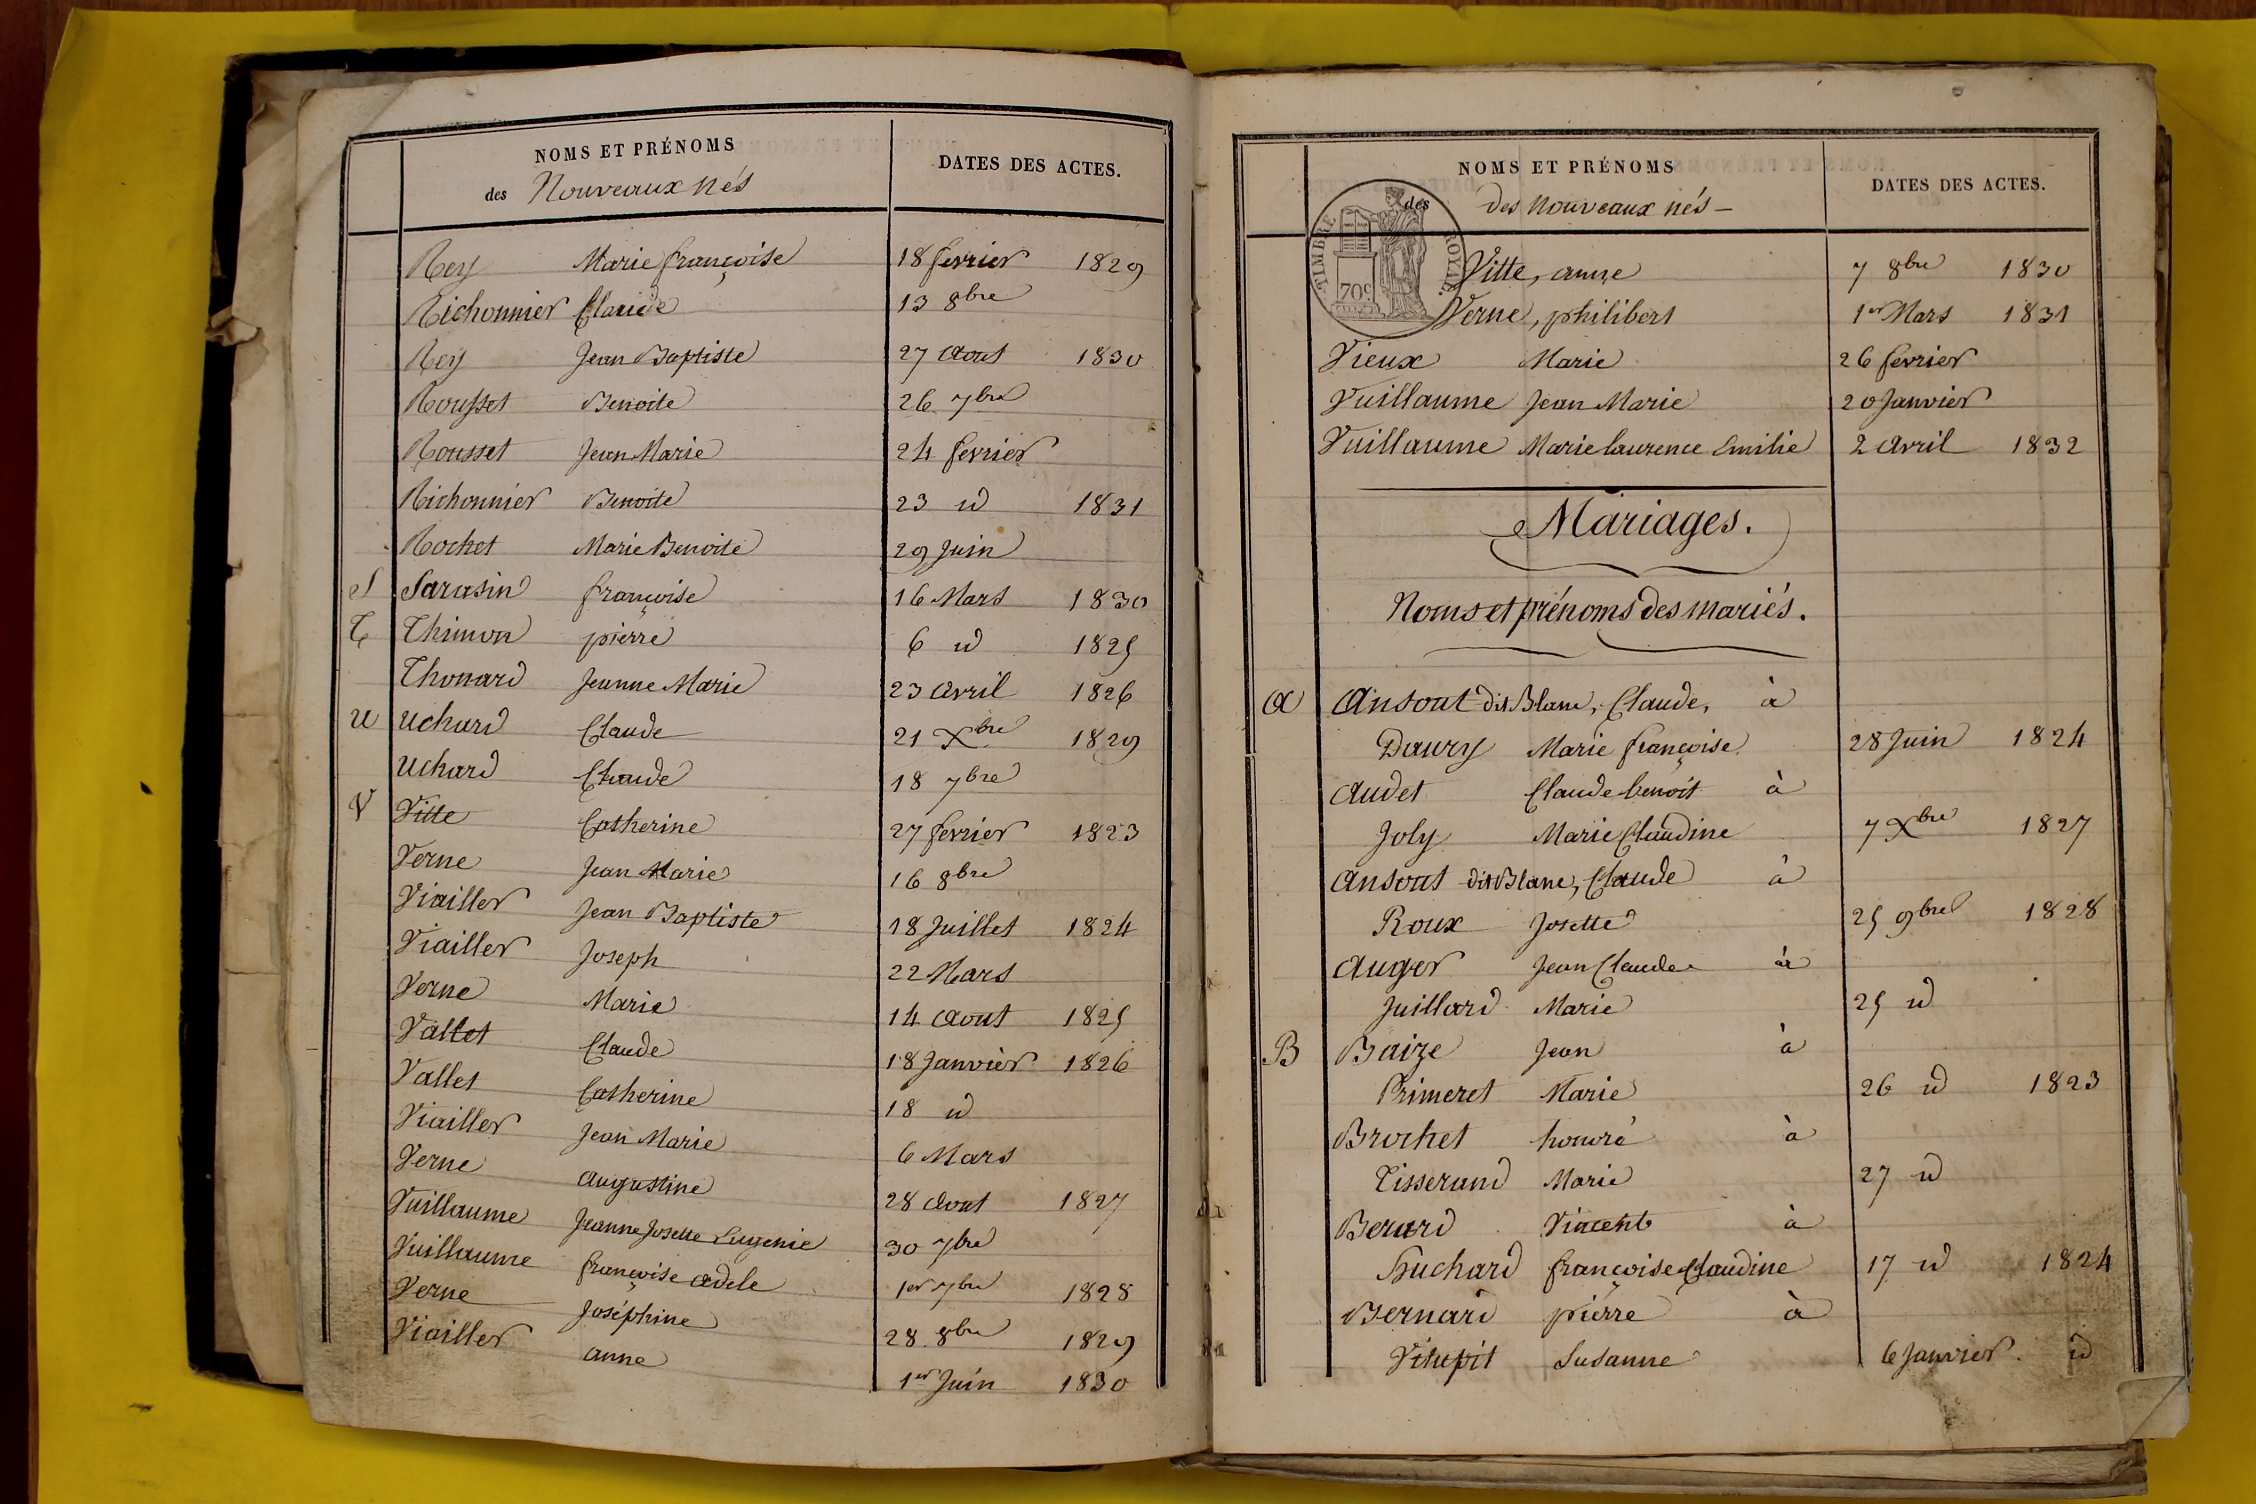 NOMS ET PRÉNOMS
des Nouveaux nés
DATES DES ACTES.
Rey Marie françoise 18 fevrier 1829
Richonnier Claude 13 8bre
Rey Jean Baptiste 27 Aout 1830
Rousset Benoite 26 7bre
Rousset Jean Marie 24 fevrier
Richonnier Benoite 23 id 1831
Rochet Marie Benoite 29 Juin
S Sarasin françoise 16 Mars 1830
T Thimon pierre 6 id 1825
Thonard Jeanne Marie 23 avril 1826
U Uchard Claude 21 Xbre 1829
Uchard Claude 18 7bre
V Vitte Catherine 27 fevrier 1823
Verne Jean Marie 16 8bre
Viailler Jean Baptiste 18 Juillet 1824
Viailler Joseph 22 Mars
Verne Marie 14 Aout 1825
Vallet Claude 18 Janvier 1826
Vallet Catherine 18 id
Viailler Jean Marie 6 Mars
Verne augustine 28 Aout 1827
Vuillaume Jeanne Josette Eugenie 30 7bre
Vuillaume françoise adele 1er 7bre 1828
Verne Joséphine 28 8bre 1829
Viailler anne 1er Juin 1830
NOMS ET PRÉNOMS
des
des nouveaux nés -
DATES DES ACTES.
TIMBRE ROYAL
70c
Vitte, anne 7 8bre 1830
Verne, philibert 1er Mars 1831
Vieux Marie 26 fevrier
Vuillaume Jean Marie 20 Janvier
Vuillaume Marie laurence Emilie 2 avril 1832
Mariages.
Noms et prénoms des mariés.
A Ansout dit Blanc, Claude, à
Daury Marie françoise 28 Juin 1824
Audet Claude benoit à
Joly Marie Claudine 7 Xbre 1827
Ansout dit Blanc, Claude à
Roux Josette 25 9bre 1828
Auger Jean Claude à
Juillard Marie 25 id
B Baize Jean à
Primeret Marie 26 id 1823
Brochet honoré à
Tisserand Marie 27 id
Berard Vincent à
Huchard françoise Claudine 17 id 1824
Bernard pierre à
Vitupit Susanne 6 Janvier id